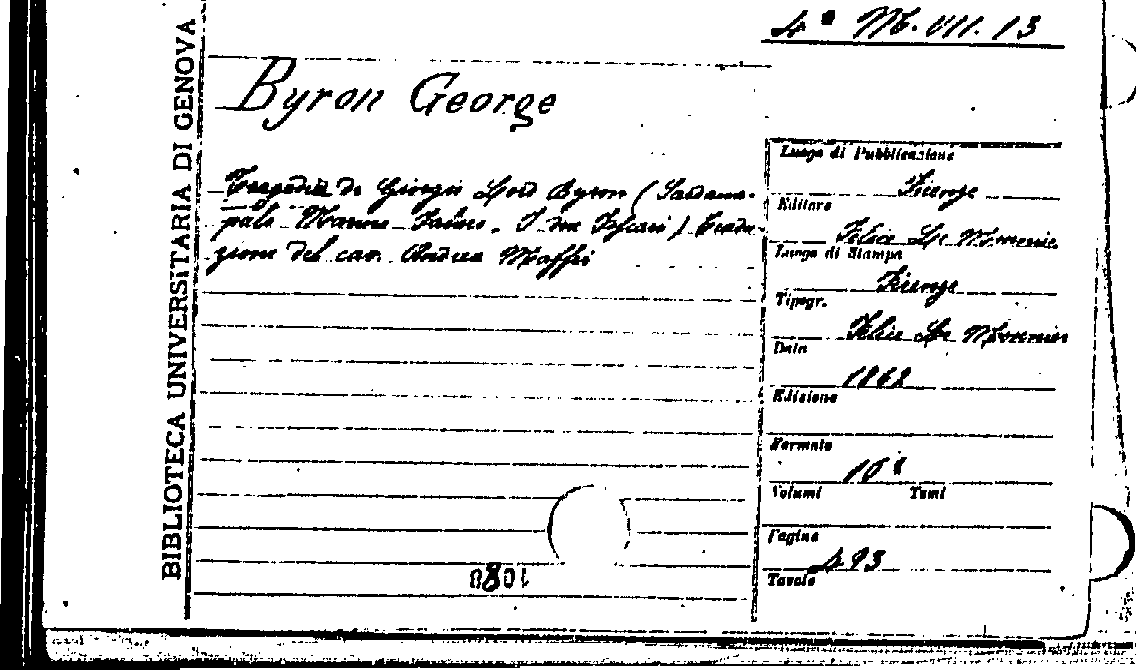 4ª M. VII. 13
BIBLIOTECA UNIVERSITARIA DI GENOVA
Byron George
Tragedie di Giorgio Lord Byron (Sardana-
palo Marino Faliero, I due Foscari) Tradu-
zione del cav. Andrea Maffei
Luogo di Pubblicazione
Firenze
Editore
Felice Le Monnier
Luogo di Stampa
Firenze
Tipogr.
Felice Le Monnier
Data
1862
Edizione
Formato
Volumi Tomi
Pagine
493
Tavole